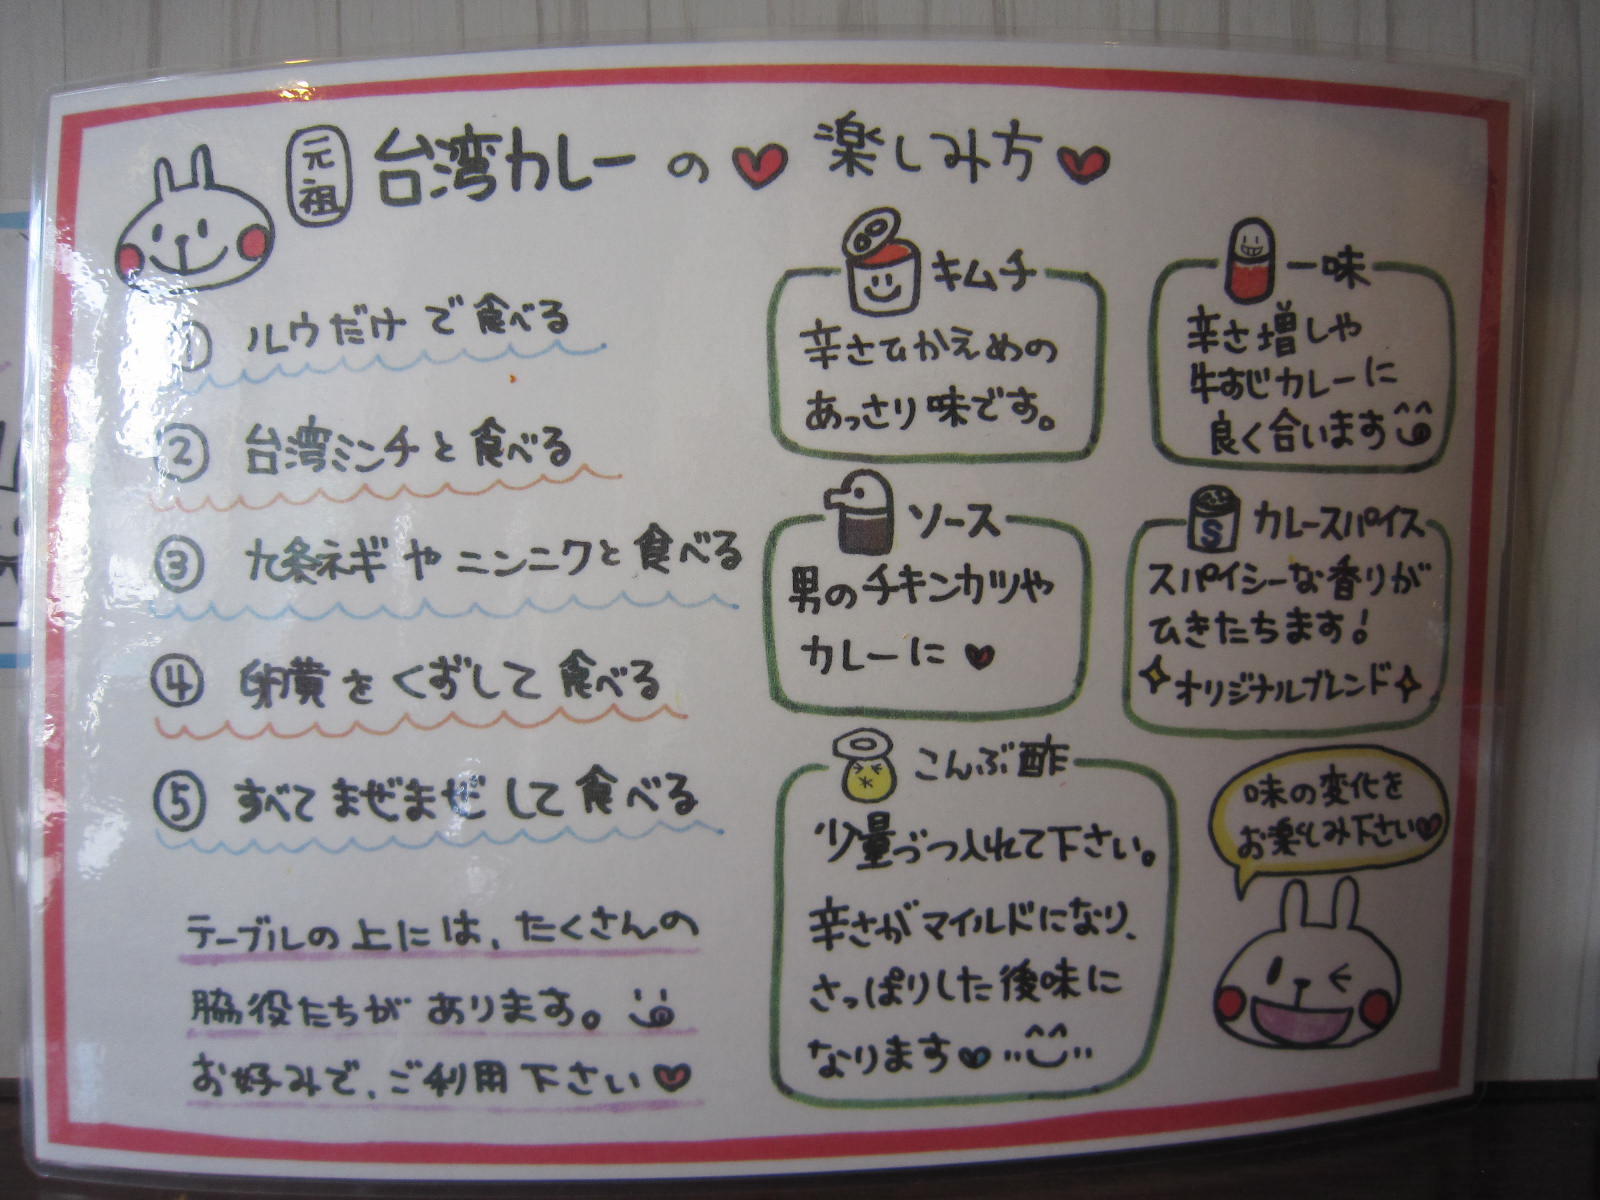 元祖 台湾カレーの 楽しみ方
① ルウだけで食べる
② 台湾ミンチと食べる
③ 九条ネギやニンニクと食べる
④ 卵黄をくずして食べる
⑤ すべてまぜまぜして食べる
テーブルの上には、たくさんの
脇役たちがあります。
お好みで、ご利用下さい
キムチ
辛さひかえめの
あっさり味です。
一味
辛さ増しや
牛すじカレーに
良く合います
ソース
男のチキンカツや
カレーに
S
カレースパイス
スパイシーな香りが
ひきたちます!
オリジナルブレンド
こんぶ酢
少量づつ入れて下さい。
辛さがマイルドになり、
さっぱりした後味に
なります
味の変化を
お楽しみ下さい